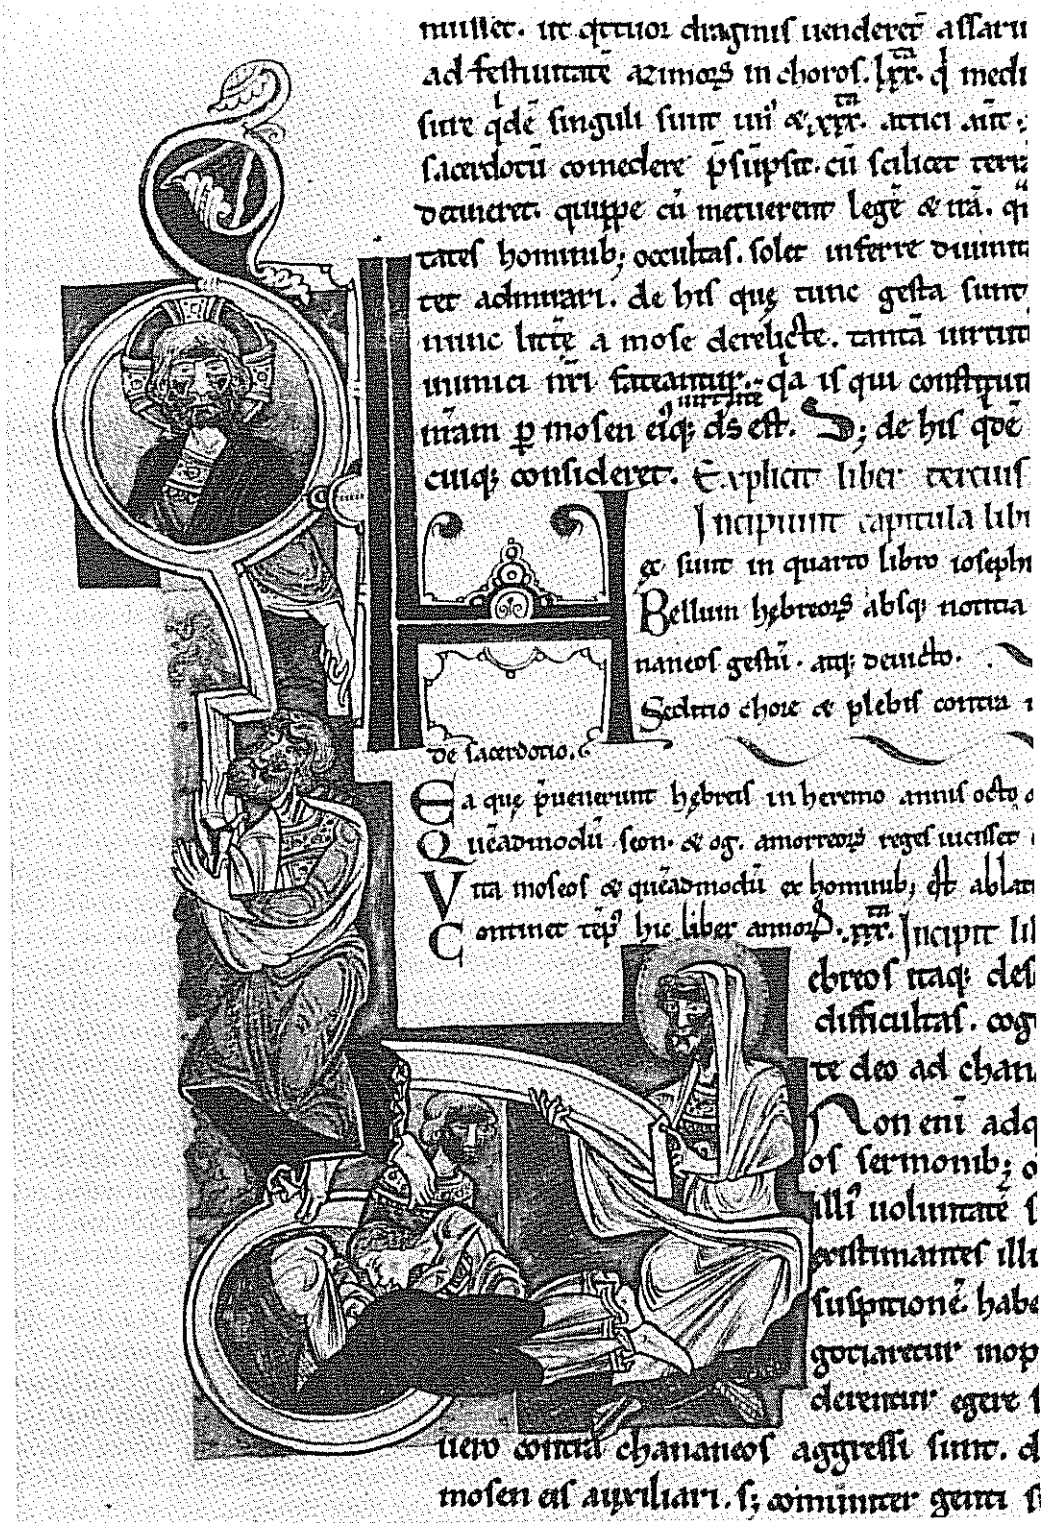 muisset. ut q̄ttuor dragmis uenderet᷑ assaru
ad festiuitatē azimoꝝ in choros. lxx. ta q̇ medi
sure q̇dē singuli sunt unī & xxx. ta attici aūt
sacerdotū comedere p̄sūpsit. cū scilicet terrā
decuteret. quippe cū metuerent legē & irā. q̄
tates hominib; occultas. solet inferre diuinit
ter admirari. de his quę tunc gesta sunt
nunc litt̄ę a mose derelictę. tantā uirtut
inimici nr̄i fateantur. q̇a is qui constitun
nr̄am ꝑ mosen eiꝰq; uirtute d̄s est. S; de his q̇dē
cuiq; consideret. Explicit liber tercius
Incipiunt capitula libri
H ęc sunt in quarto libro ioseph
Bellum hębreoꝝ absq; noticia
naneos gestū. atq; deuicto.
Seditio chore & plebis contra
de sacerdotio.
Ea quę p̄uenerunt hębreis in heremo annis octo
Quēadmodū seon. & og. amorreoꝝ reges uicisset
Vita moseos & quēadmodū ex hominib; est ablat
Continet tēpꝰ hic liber annoꝝ. xxx. ta Incipit lib
ebreos itaq; des
difficultas. cog
te deo ad chan
Non enī adq
os sermonib;
illiꝰ uoluntatē
existimantes illi
suspitionē habe
gociaretur mop
derentur egere
uero contra chananeos aggressi sunt.
mosen eis auxiliari. s; comuniter genti